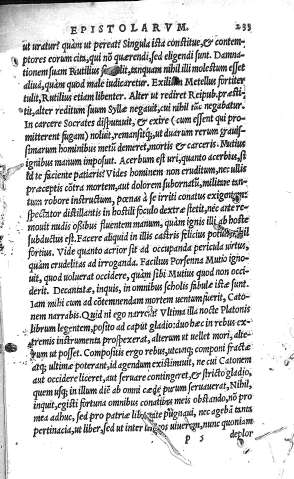 EPISTOLARVM. 233
ut uratur? quàm ut pereat? Singula ista constitue, & contem-
ptores eorum cita, qui nō quærendi, sed eligendi sunt. Damna-
tionem suam Rutilius sic tulit, tanquam nihil illi molestum esset
aliud, quàm quod male iudicaretur. Exilium Metellus fortiter
tulit, Rutilius etiam libenter. Alter ut rediret Reipub. præsti-
tit, alter reditum suum Syllæ negauit, cui nihil tūc negabatur.
In carcere Socrates disputauit, & exire (cum essent qui pro-
mitterent fugam) noluit, remansitq́;, ut duarum rerum grauis-
simarum hominibus metū demeret, mortis & carceris. Mutius
ignibus manum imposuit. Acerbum est uri, quanto acerbius, si
id te faciente patiaris? Vides hominem non eruditum, nec ullis
præceptis cōtra mortem, aut dolorem subornatū, militare tan-
tum robore instructum, pœnas à se irriti conatus exigentem:
spectator distillantis in hostili foculo dextræ stetit, nec ante re-
mouit nudis ossibus fluentem manum, quàm ignis illi ab hoste
subductus est. Facere aliquid in illis castris felicius potuit, nihil
fortius. Vide quanto acrior sit ad occupanda pericula uirtus,
quàm crudelitas ad irroganda. Facilius Porsenna Mutio igno-
uit, quod uoluerat occidere, quàm sibi Mutius quod non occi-
derit. Decantatæ, inquis, in omnibus scholis fabulæ istæ sunt.
Iam mihi cum ad cōtemnendam mortem uentum fuerit, Cato-
nem narrabis. Quid ni ego narrem? Vltima illa nocte Platonis
librum legentem, posito ad caput gladio: duo hæc in rebus ex-
tremis instrumenta prospexerat, alterum ut uellet mori, alte-
rum ut posset. Compositis ergo rebus, utcunq; componi fractæ
atq; ultimæ poterant, id agendum existimauit, ne cui Catonem
aut occidere liceret, aut seruare contingeret, & stricto gladio,
quem usq; in illum diē ab omni cæde purum seruauerat, Nihil,
inquit, egisti fortuna omnibus conatibus meis obstando, nō pro
mea adhuc, sed pro patriæ libertate pugnaui, nec agebā tanta
pertinacia, ut liber, sed ut inter liberos uiuerem, nunc quoniam
P 5 deplor